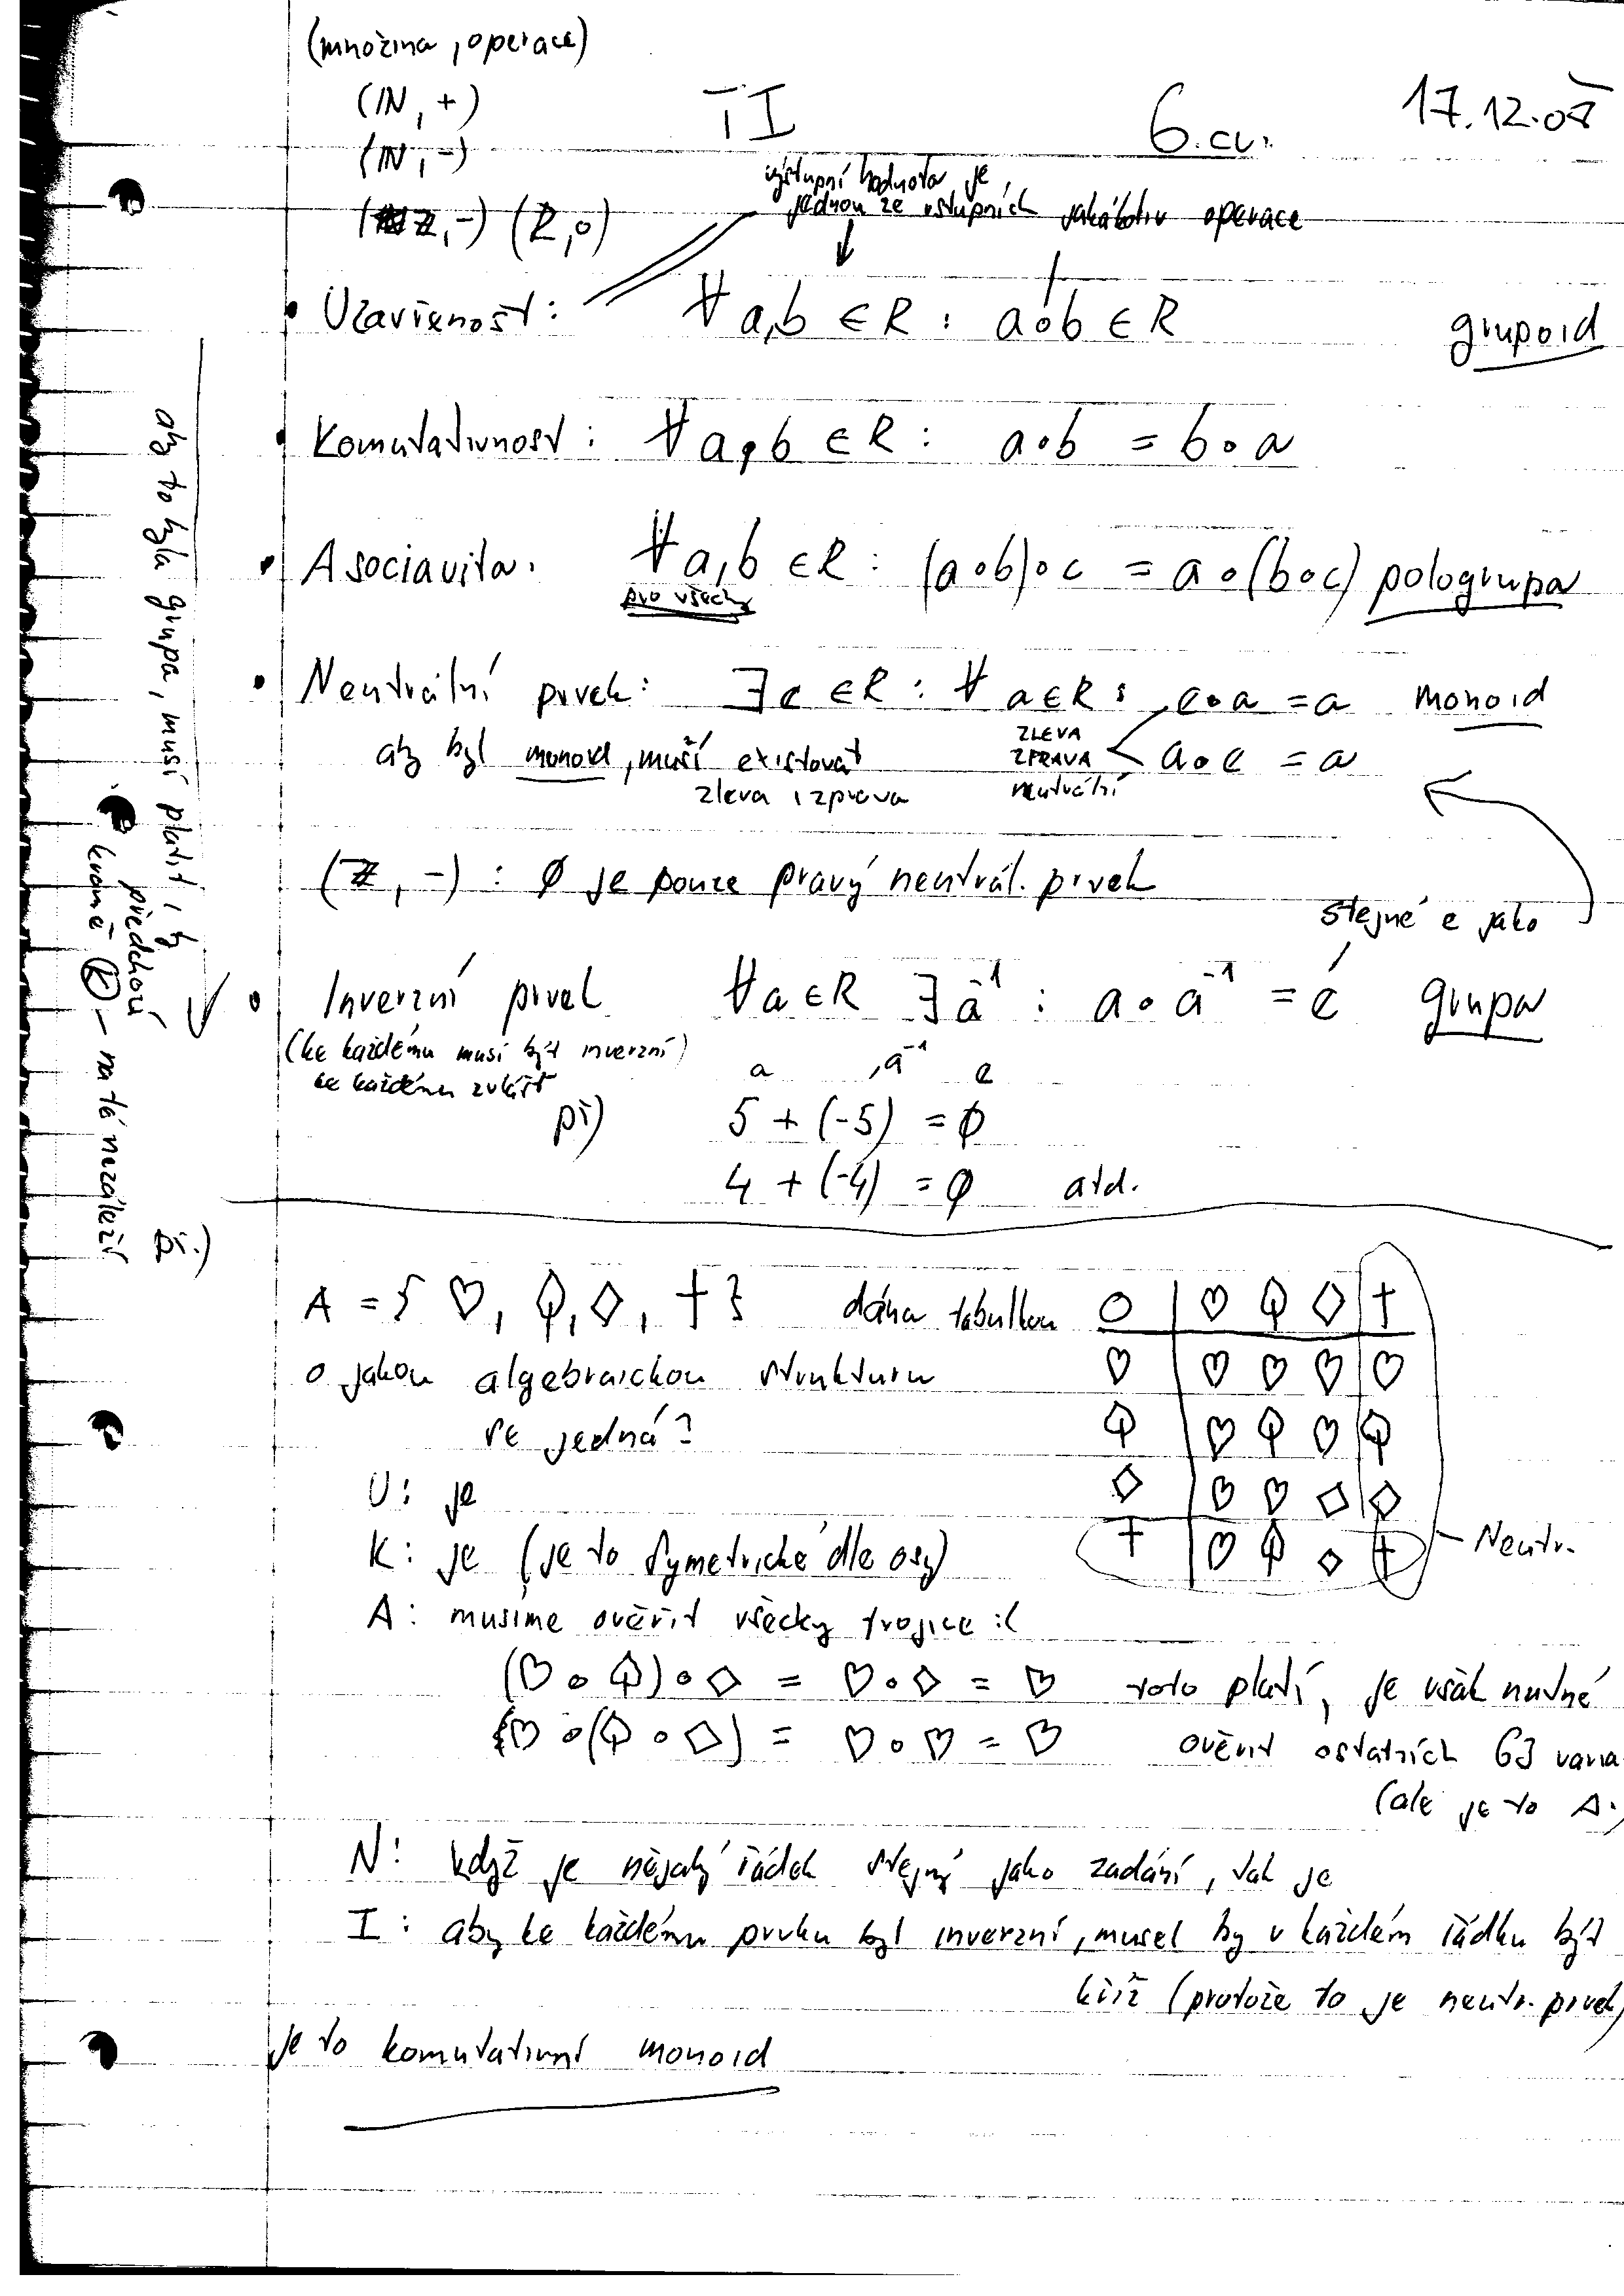 (množina, operace)
(ℕ, +)
TI
6.cv.
17.12.07
(ℕ, -)
(ℤ, -) (R, o)
výstupní hodnota je
jednou ze vstupních
jakákoliv operace
• Uzavřenost: ∀ a,b ∈ R : a∘b ∈ R grupoid
• Komutativnost: ∀ a,b ∈ R : a∘b = b∘a
• Asociavita. ∀ a,b ∈ R : (a∘b)∘c = a∘(b∘c) pologrupa
pro všechy
• Neutrální prvek: ∃ e ∈ R : ∀ a ∈ R : e∘a = a monoid
aby byl monoid, muší existovat
zleva i zprava
ZLEVA
ZPRAVA
neutrální
a∘e = a
(ℤ, -) : ∅ je pouze pravý neutrál. prvek
stejné e jako
• Inverzní prvek ∀a ∈ R ∃ a⁻¹ : a∘a⁻¹ = e grupa
(ke každému musí být inverzní)
ke každému zvlášť
a , a⁻¹ e
př) 5 + (-5) = ∅
4 + (-4) = ∅ atd.
aby to byla grupa, musí platit i ty
předchozí
kromě Ⓚ - na té nezáleží
př.)
A = { ♡, ♤, ◇, † } dána tabulkou
o jakou algebraickou strukturu
se jedná?
○ | ♡ ♤ ◇ | †
♡ | ♡ ♡ ♡ | ♡
♤ | ♡ ♤ ♡ | ♤
◇ | ♡ ♡ ◇ | ◇
† | ♡ ♤ ◇ | †
Neutr.
U: je
K: je (je to symetrické dle osy)
A: musíme ověřit všecky trojice :(
(♡ ∘ ♤) ∘ ◇ = ♡ ∘ ◇ = ♡ toto platí, je však nutné
♡ ∘ (♤ ∘ ◇) = ♡ ∘ ♡ = ♡ ověřit ostatních 63 varia
(ale je to A.)
N: když je nějaký řádek stejný jako zadání, tak je
I: aby ke každému prvku byl inverzní, musel by v každém řádku být
kříž (protože to je neutr. prvek)
je to komutativní monoid